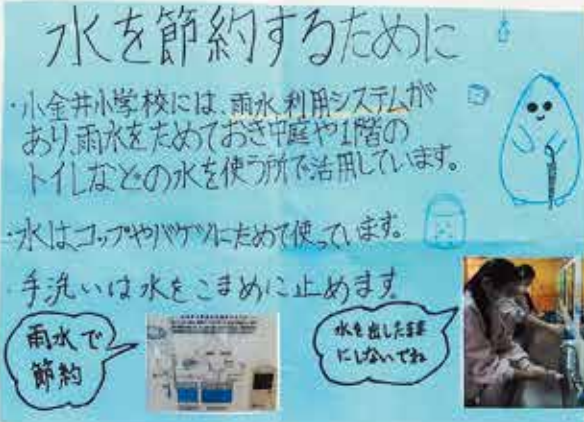 水を節約するために
・小金井小学校には、雨水利用システムが
あり、雨水をためておき中庭や1階の
トイレなどの水を使う所で活用しています。
・水は、コップやバケツにためて使っています。
・手洗いは水をこまめに止めます。
雨水で
節約
水を出したまま
にしないでね